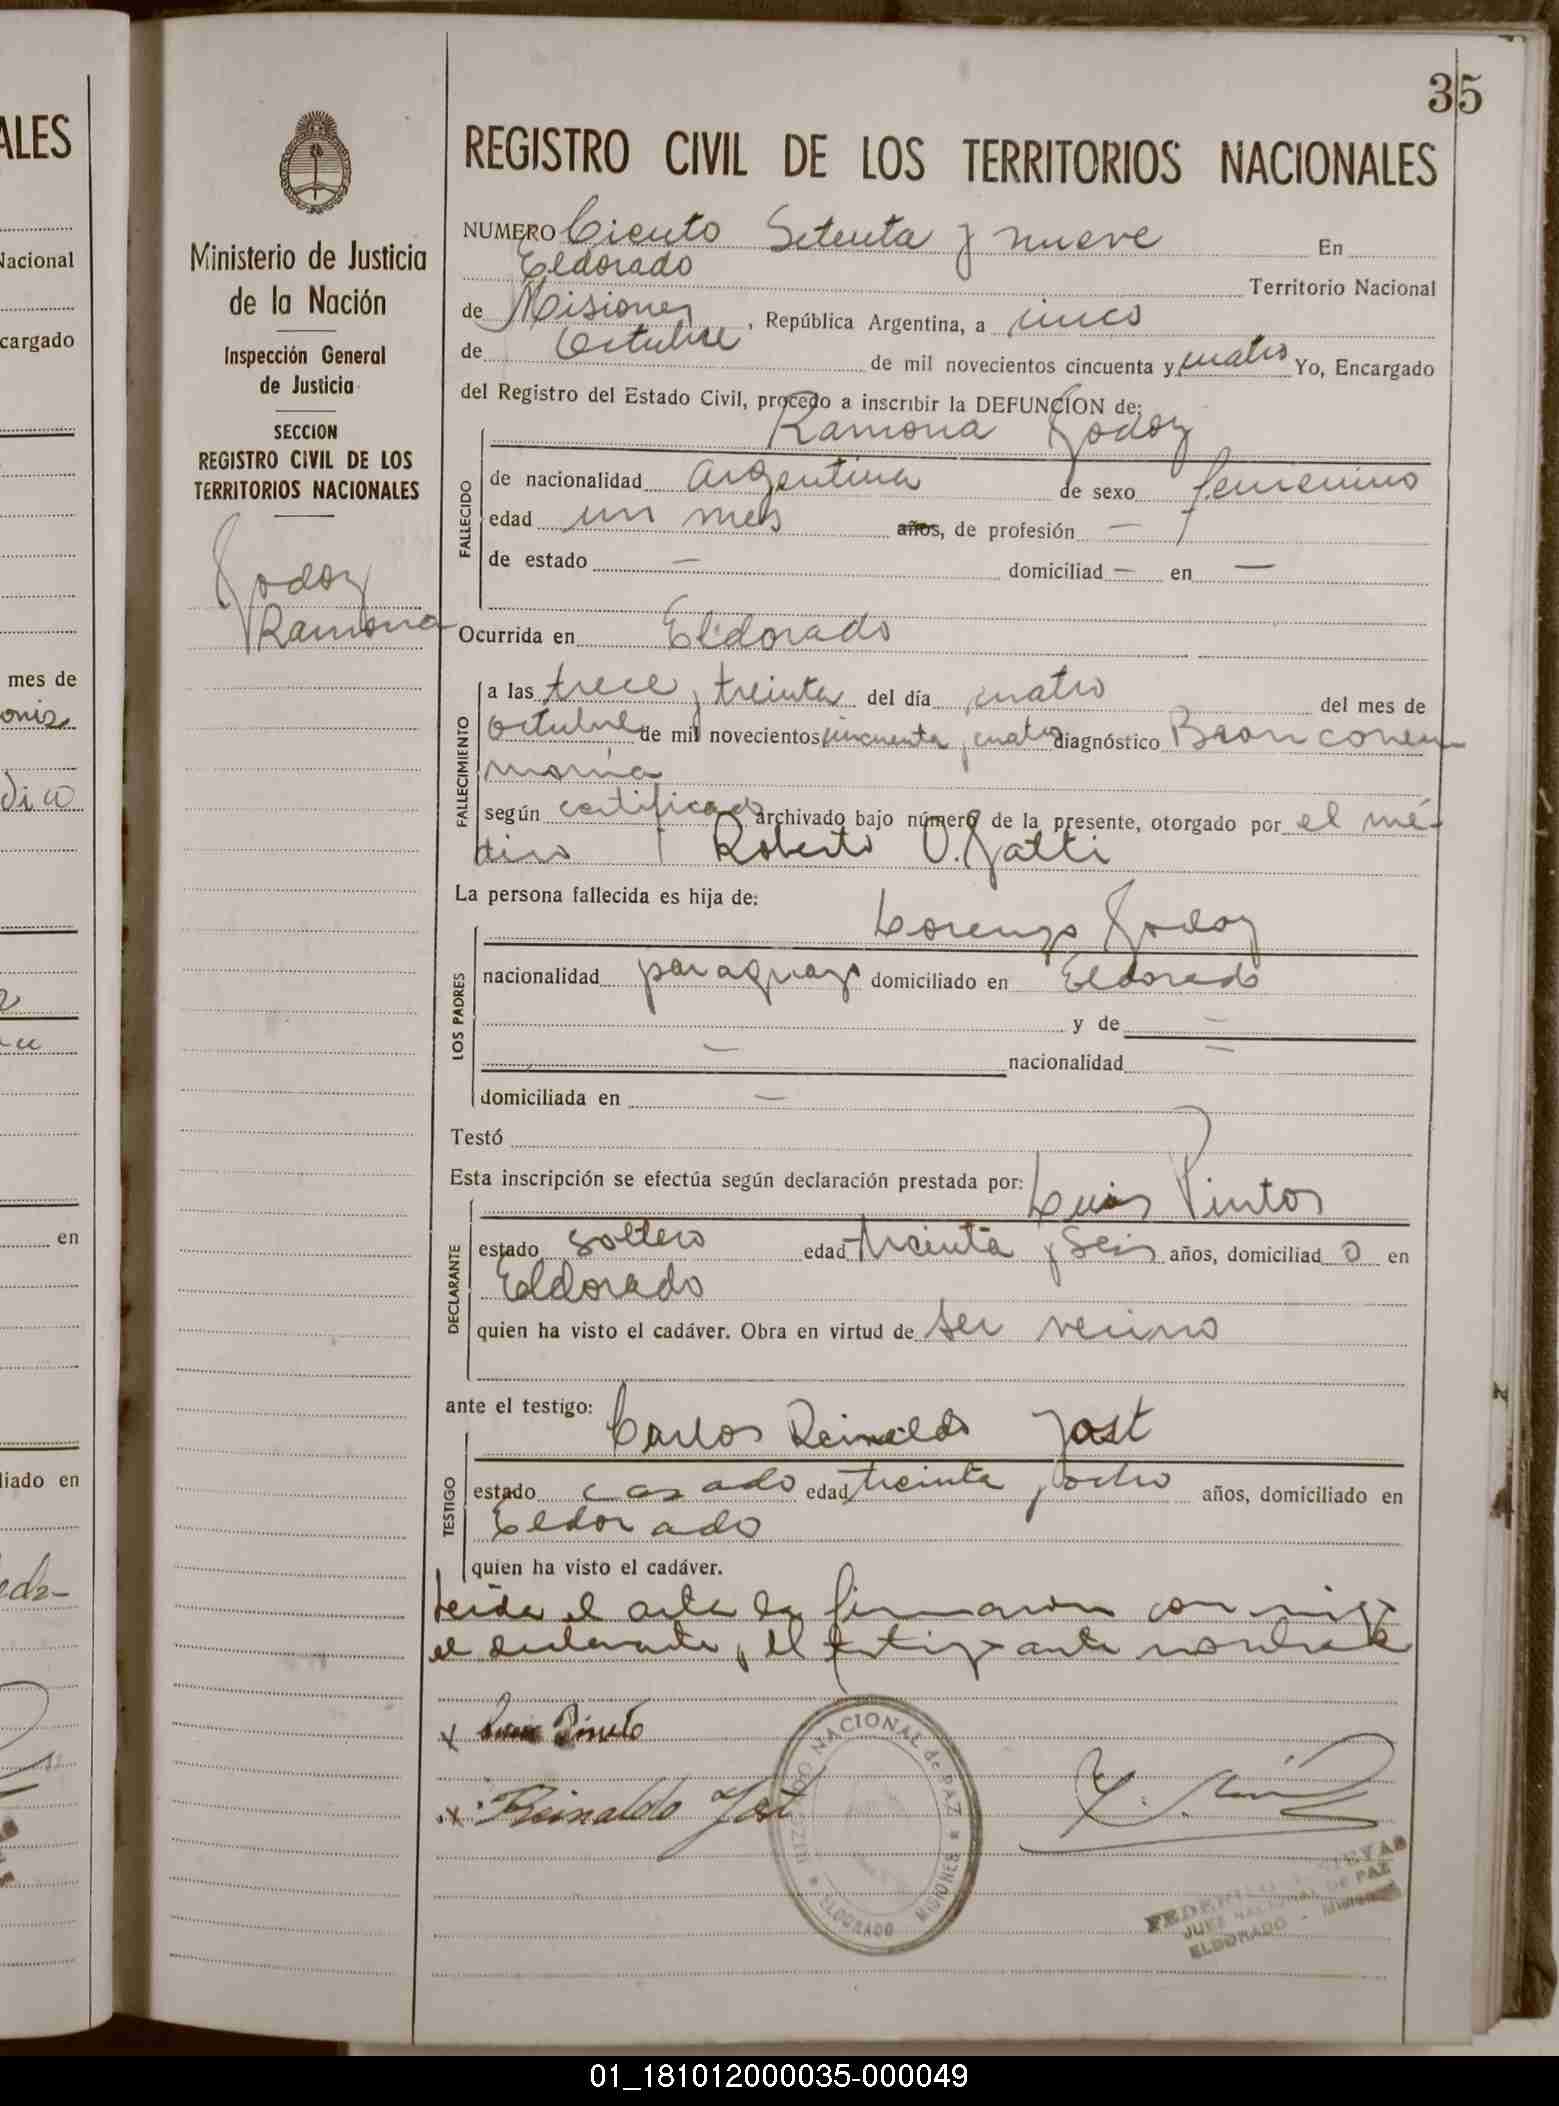 35
REGISTRO CIVIL DE LOS TERRITORIOS NACIONALES
Ministerio de Justicia
de la Nación
Inspección General
de Justicia
SECCION
REGISTRO CIVIL DE LOS
TERRITORIOS NACIONALES
Godoy
Ramona
NUMERO Ciento Setenta y nueve En
Eldorado Territorio Nacional
de Misiones, República Argentina, a cinco
de Octubre de mil novecientos cincuenta y cuatro Yo, Encargado
del Registro del Estado Civil, procedo a inscribir la DEFUNCION de:
Ramona Godoy
FALLECIDO
de nacionalidad argentina de sexo femenino
edad un mes años, de profesión —
de estado — domiciliad — en —
Ocurrida en Eldorado
FALLECIMIENTO
a las trece y treinta del día cuatro del mes de
octubre de mil novecientos cincuenta y cuatro diagnóstico Bronconeu
monía
según certificado archivado bajo número de la presente, otorgado por el mé-
dico Roberto O. Gatti
La persona fallecida es hija de:
Lorenzo Godoy
LOS PADRES
nacionalidad paraguayo domiciliado en Eldorado
y de —
— nacionalidad —
domiciliada en —
Testó
Esta inscripción se efectúa según declaración prestada por: Luis Pintos
DECLARANTE
estado soltero edad treinta y seis años, domiciliad o en
Eldorado
quien ha visto el cadáver. Obra en virtud de ser vecino
ante el testigo: Carlos Reinaldo Jost
TESTIGO
estado casado edad treinta y ocho años, domiciliado en
Eldorado
quien ha visto el cadáver.
Leida el acta la firmaron conmigo
el declarante y el testigo ante nombrado
x Pinto
x Reinaldo Jost
JUZGADO NACIONAL de PAZ
ELDORADO MISIONES
JUEZ NACIONAL DE PAZ
ELDORADO - Misiones
ALES
Nacional
cargado
mes de
en
liado en
01_181012000035-000049